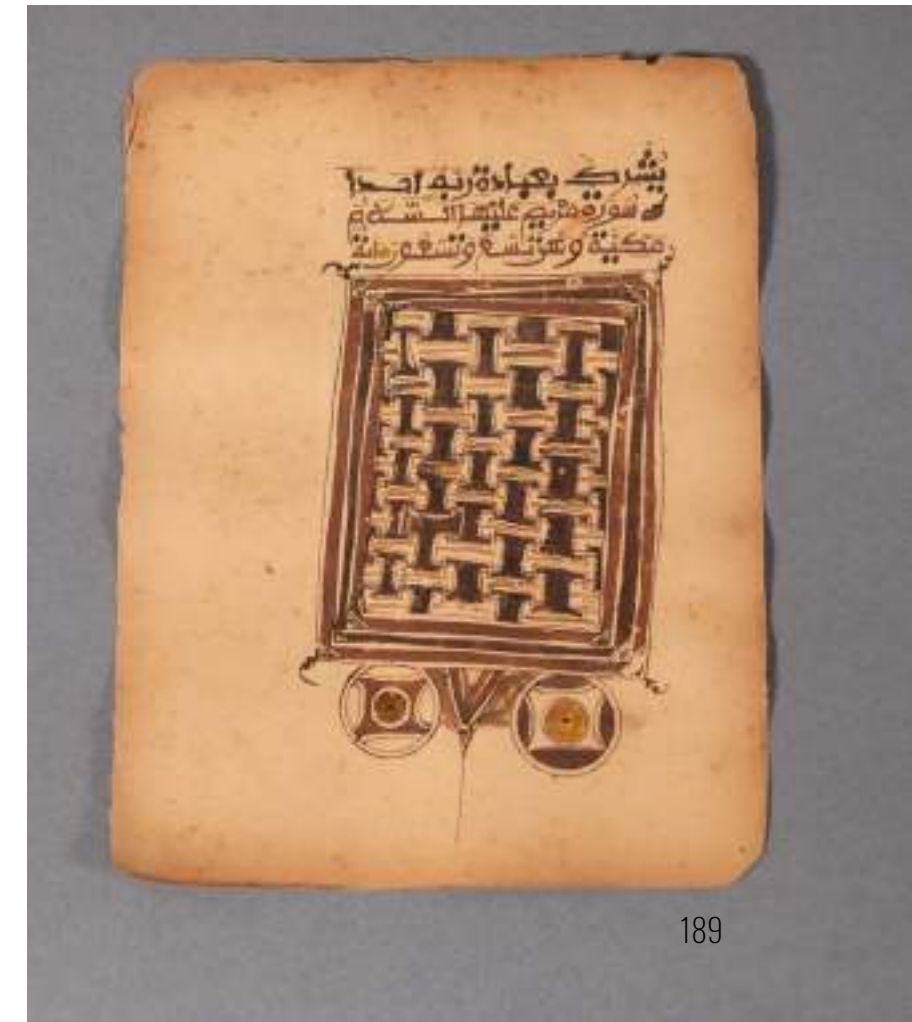 يشرك بعبادة ربه احدا
سورة مريم عليها السلم
مكية وهي تسع وتسعون اية
189